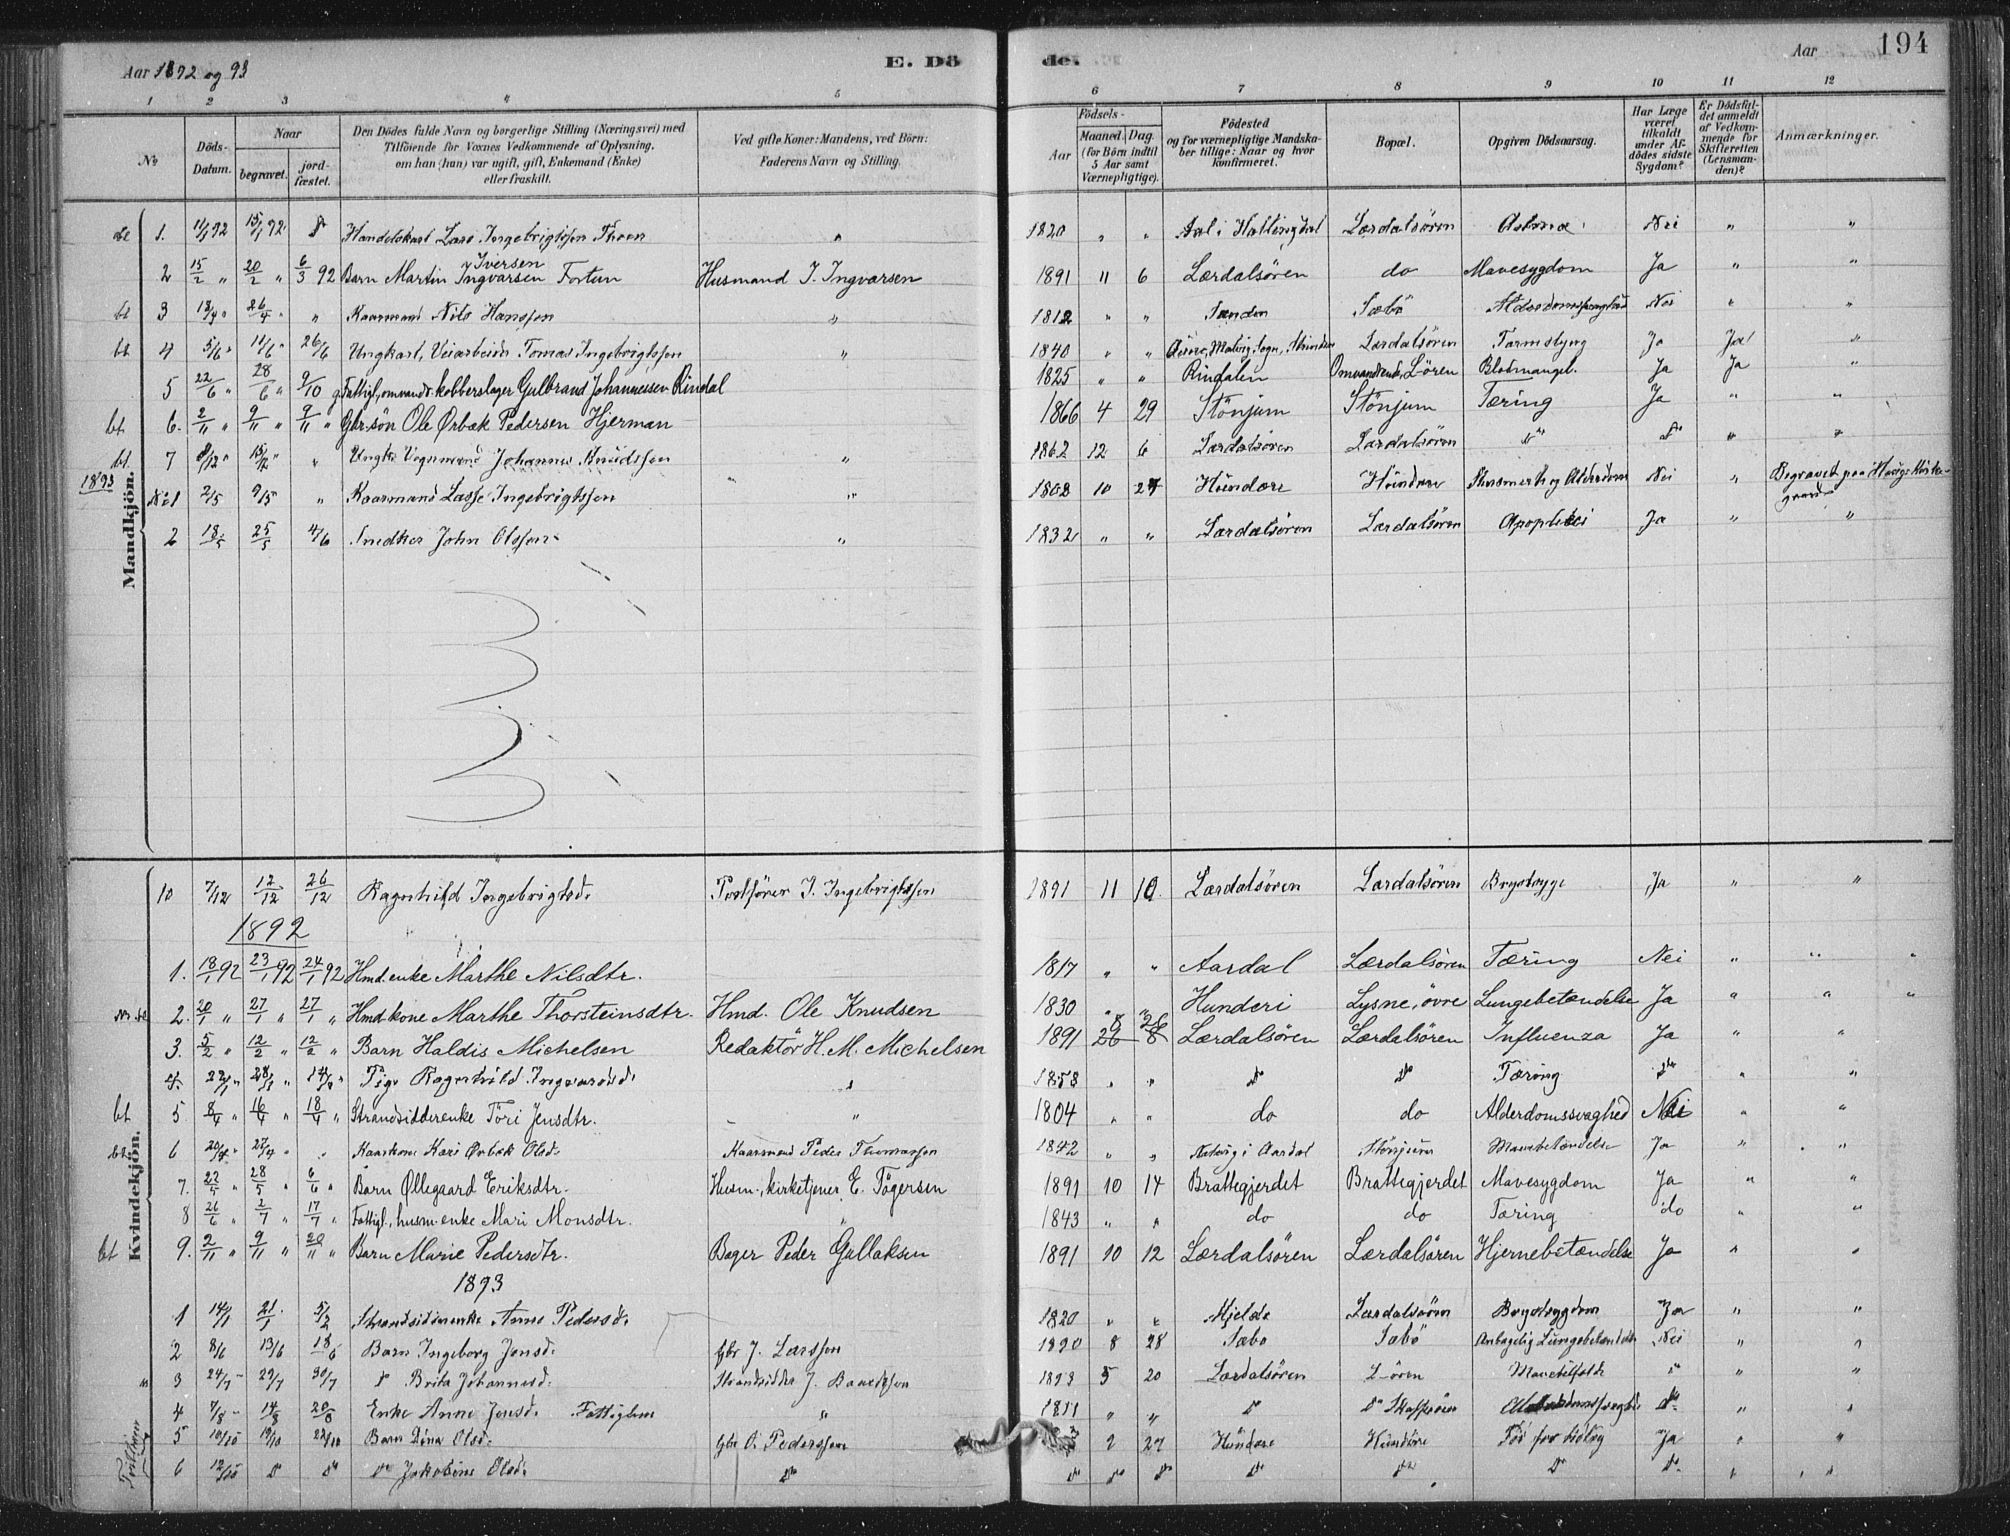 Aar 1892 og 93 E. Dö de. Aar 194
1 2 3 4 5 6 7 8 9 10 11 12
No Döds-Datum. Naar begravet. jord-fæstet. Den Dödes fulde Navn og borgerlige Stilling (Næringsvei) med Tilföiende for Voxnes Vedkommende af Oplysning. om han (hun) var ugift, gift, Enkemand (Enke) eller fraskilt. Ved gifte Koner: Mandens, ved Börn: Faderens Navn og Stilling. Födsels- Aar Maaned. Dag. (for Börn indtil 5 Aar samt Værnepligtige). Födested og for værnepligtige Mandska-ber tillige: Naar og hvor konfirmeret. Bopæl. Opgiven Dödsaarsag. Har Læge været tilkaldt under Af-dödes sidste Sygdom? Er Dödsfal-det anmeldt af Vedkom-mende for Skifteretten (Lensman-den)? Anmærkninger.
Mandkjön.
1. 11/1 92 15/1 92 Handelskarl Lars Ingebrigtssen Thoen " 1820 " " Aal i Hallingdal Lærdalsören Astma Nei " "
2 15/2 " 20/2 " 6/3 92 Barn Martin Iversen Ingvarsen Fortun Husmand I. Ingvarsen 1891 11 6 Lærdalsören do Mavesygdom Ja " "
bt 3 18/4 " 26/4 " " Kaarmand Nils Hanssen " 1812 " " Sanden Sæbö Nei " "
bt 4 5/6 " 11/6 " 26/6 Ungkarl, Veiarbeider Tomas Ingebrigtssen " 1840 " " Lærdalsören Ja Ja "
5 22/6 " 28/6 " 9/10 Fattigl., omvandr. kobberslager Gulbrand Johannessen Rindal 1825 " " Rindalen Omvandrende, L-ören Blodmangel. Ja Ja "
bt. 6. 2/11 " 9/11 " 9/11 " Gbr. sön Ole Ørbæk Pedersen Hjerman 1866 4 29 Stönjum Stönjum Tæring Ja " "
bt. 7 8/12 " 15/12 " " Ungk. Vognmand Johannes Knudssen " 1862 12 6 Lærdalsören Lærdalsören do do " "
1893
No 1 2/5 9/5 " Kaarmand Lasse Ingebrigtssen " 1808 10 24 Hundere Hundere og Alderdom Nei " Begravet paa Hauge Kirke-gaard
2 18/5 25/5 4/6 Snedker John Olssen " 1832 " " Lærdalsören Lærdalsören Apoplexi Ja " "
Kvindekjön.
10 7/12 12/12 26/12 Ragnhild Ingebrigtsd. Postförer I. Ingebrigtssen 1891 11 10 Lærdalsören Lærdalsören Brystsyge Ja " "
1892
1. 18/1 92 23/1 92 24/1 92 Hmd.enke Marthe Nilsdtr. 1817 " " Aardal Lærdalsören Tæring Nei " " "
2. 20/1 " 27/1 " 27/1 " Hmd.kone Marthe Thorsteinsdtr. Hmd. Ole Knudsen 1830 " " Hunderi Lysne, övre Lungebetændelse Ja " " "
3. 5/2 " 12/2 " 12/2 " Barn Haldis Michelsen Redaktör H. M. Michelsen 1891 8 28 Lærdalsören Lærdalsören Influenza Ja " "
4. Pige Ragnhild Ingvarsd. " 1858 " " do do Tæring do " "
bt 5. 8/4 " 16/4 " 18/4 " Strandsidderenke Töri Jensdtr. " 1804 " " do do Alderdomssvaghed Nei " "
bt. 6 20/4 " 27/4 " " Kaarkone Kari Ørbæk Olsd. Kaarmand Peder Thomassen 1842 " " i Aardal Stönjum Mavebetændelse Ja " "
7. 22/5 " 28/5 " 6/6 " Barn Øllegaard Eriksdtr. Husm., kirketjener E. Tögersen 1891 10 14 Brattegjerdet Brattegjerdet Mavesygdom Ja " "
8 26/6 " 2/7 " 17/7 " Fattigl., husm. enke Mari Monsdtr. " 1843 " " do do Tæring do " "
bt 9. 2/11 " 9/11 " 20/11 " Barn Marie Pedersdtr. Bager Peder Gullaksen 1891 10 12 Lærdalsören Lærdalsören Hjernebetændelse Ja " "
1893
1 14/1 21/1 5/2 Strandsidderenke Anne Pedersd. 1820 " " Hjelde Lærdalsören Brystsygdom Ja " "
2 8/6 13/6 18/6 Barn Ingeborg Jensd. Gbr J. Larssen 1890 8 28 Sæbö Sæbö Antagelig Lungebetændelse Nei " "
3 24/7 29/7 30/7 do Brita Johannesd. Strandsidder J. 1893 5 20 Lærdalsören L-ören do " "
4 7/8 14/8 20/8 Enke Anne Jensd. Fattiglem " 1811 " " do do do " "
Tvillinger 5 10/10 19/10 22/10 Barn Dina Olsd. Gbr O. Pederssen 2 27 Hundere Hundere Född for tidlig Ja " "
6 12/10 do do do Jakobine Olsd. do do do do do do do do " "